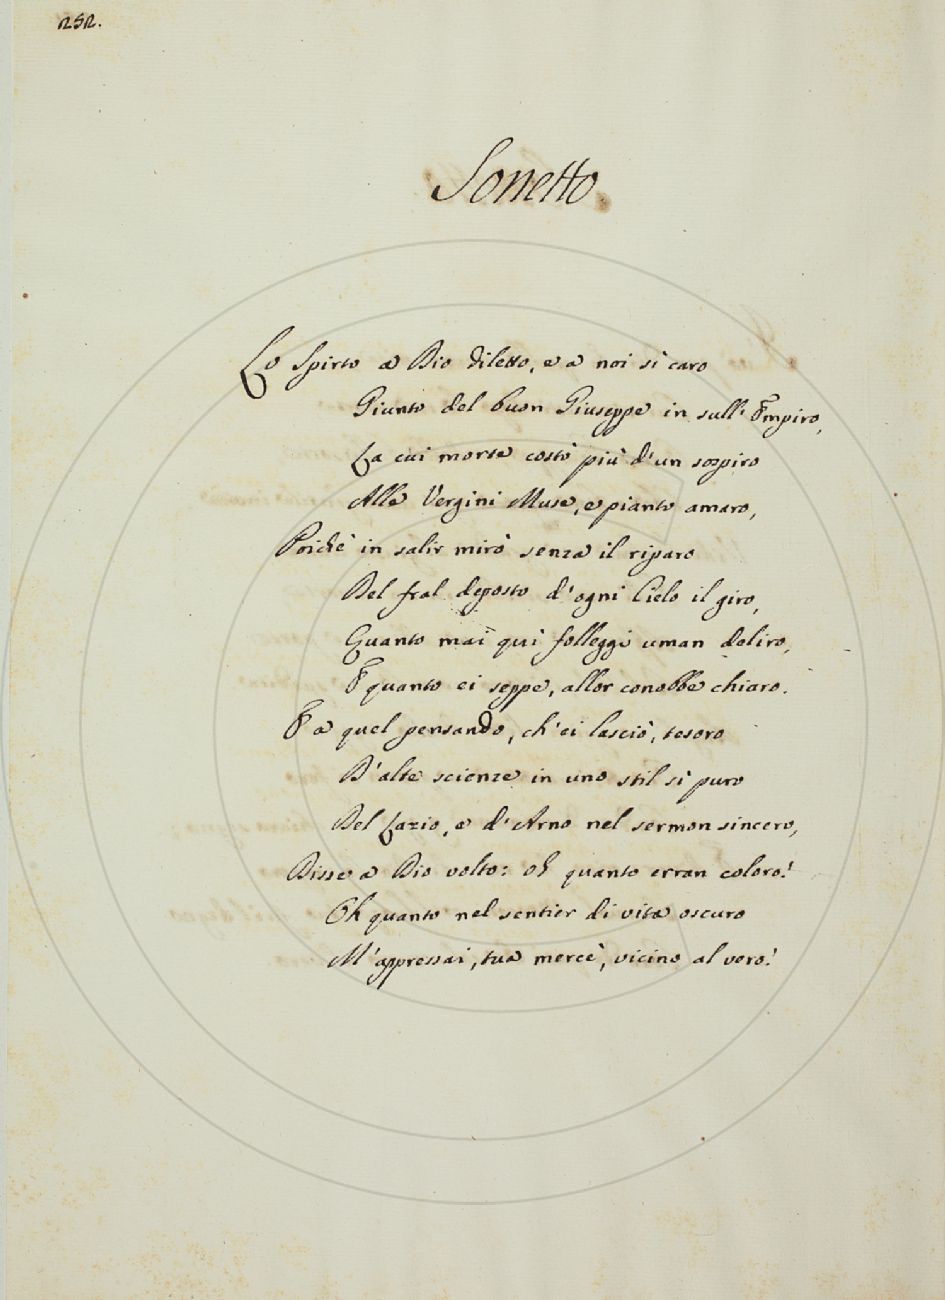 252.
Sonetto
Lo Spirto a Dio diletto, e a noi sì caro
Giunto del buon Giuseppe in sull' Empiro,
La cui morte costò più d'un sospiro
Alle Vergini Muse, e pianto amaro,
Poichè in salir mirò senza il riparo
Del fral deposto d'ogni Cielo il giro,
Quanto mai quì folleggi uman deliro,
E quanto ei seppe, allor conobbe chiaro.
E a quel pensando, ch'ei lasciò, tesoro
D'alte scienze in uno stil sì puro
Del Lazio, e d'Arno nel sermon sincero,
Disse a Dio volto: oh quanto erran coloro!
Oh quanto nel sentier di vita oscuro
M'appressai, tua mercè, vicino al vero!